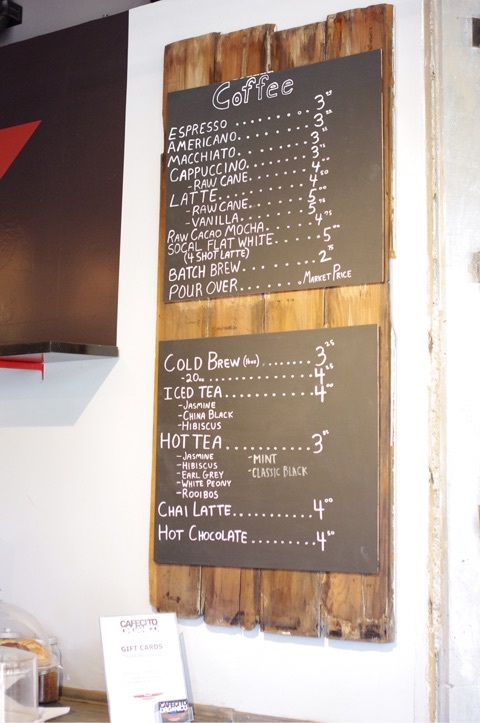 Coffee
ESPRESSO ........... 3
AMERICANO ......... 3
MACCHIATO ......... 3
CAPPUCCINO ........ 3 75
-RAW CANE ........ 4 00
LATTE ............. 4 50
-RAW CANE ........ 5
-VANILLA ......... 5
RAW CACAO MOCHA .... 4 75
SOCAL FLAT WHITE ..... 5 00
(4 SHOT LATTE)
BATCH BREW ......... 2 75
POUR OVER ....... MARKET PRICE
COLD BREW (16oz) ........ 3 25
-20oz ............... 4 25
ICED TEA ............. 4 00
-JASMINE
-CHINA BLACK
-HIBISCUS
HOT TEA ............. 3
-JASMINE -MINT
-HIBISCUS -CLASSIC BLACK
-EARL GREY
-WHITE PEONY
-ROOIBOS
CHAI LATTE ........... 4 00
HOT CHOCOLATE ......... 4 50
CAFECITO
GIFT CARDS
CAFECITO
ORGANICO